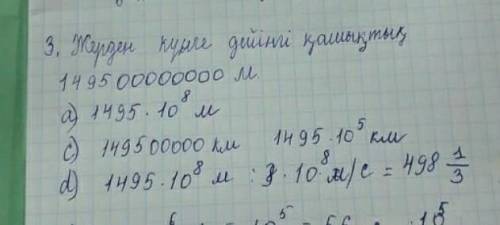 3. Жерден күнге дейінгі қашықтық
149500000000 м
a) 1495 · 10⁸ м
c) 149500000 км 1495 · 10⁵ км
d) 1495 · 10⁸ м : 3 · 10⁸ м/с = 498 1/3